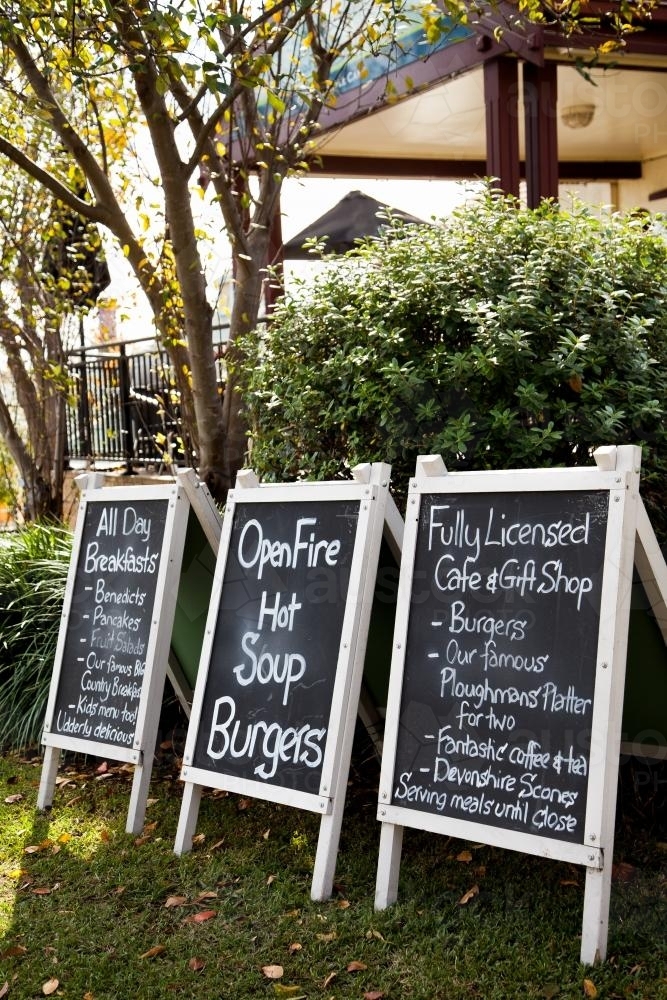 All Day
Breakfasts
- Benedicts
- Pancakes
- Fruit Salads
- Our famous BIG
Country Breakfast
- Kids' menu too!
Udderly delicious
Open Fire
Hot
Soup
Burgers
Fully Licensed
Cafe & Gift Shop
- Burgers
- Our famous
Ploughmans Platter
for two
- Fantastic coffee & tea
- Devonshire Scones
Serving meals until close